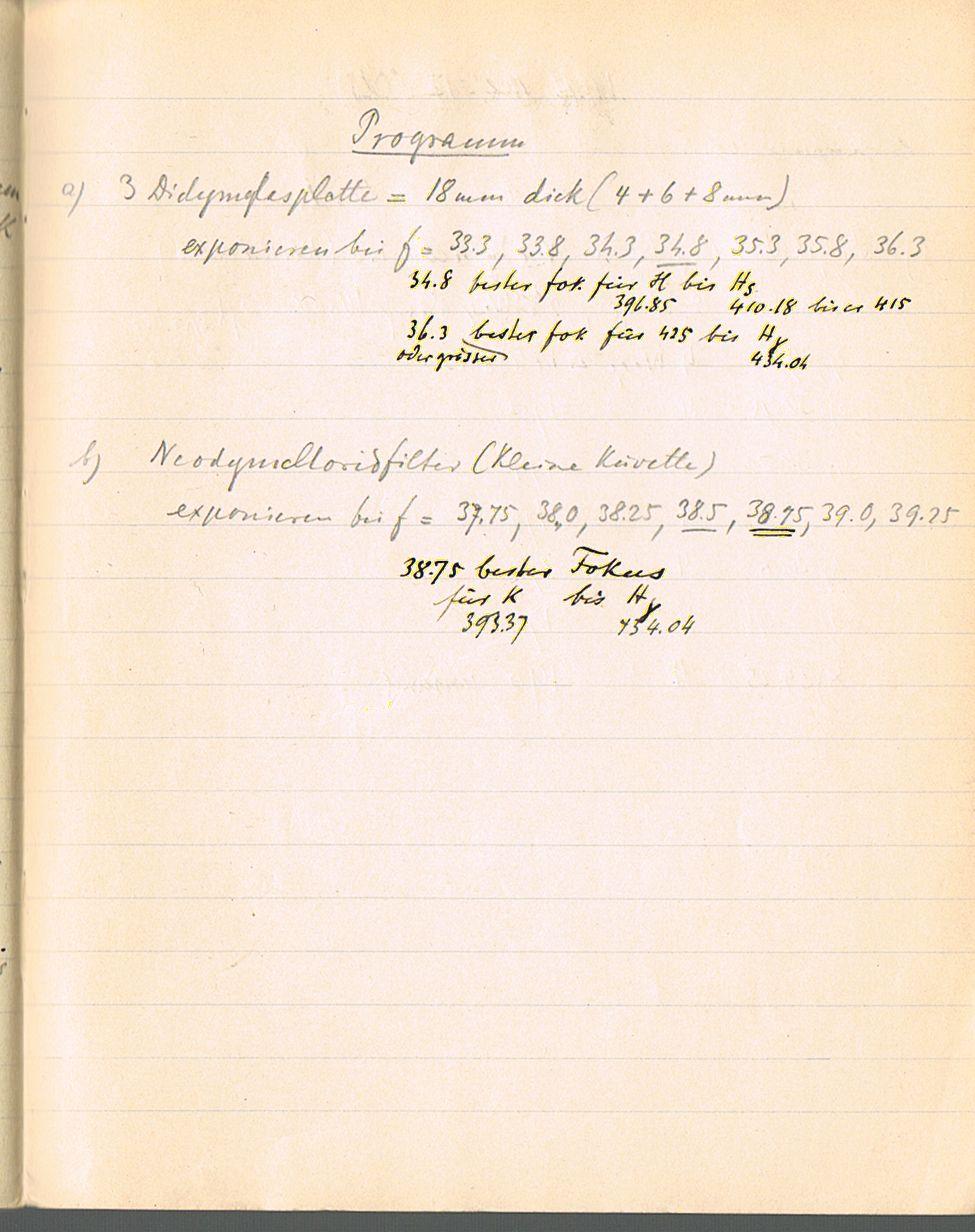 Programm
a) 3 Didymglasplatte = 18mm dick (4+6+8mm)
exponieren bei f = 33.3, 33.8, 34.3, 34.8, 35.3, 35.8, 36.3
34.8 bester fok. für H bis Hδ
396.85 410.18 bis ca 415
36.3 bester fok für 425 bis Hγ
oder grösser 434.04
b) Neodymchloridfilter (kleine Küvette)
exponieren bei f = 37.75, 38.0, 38.25, 38.5, 38.75, 39.0, 39.25
38.75 bester Fokus
für K bis Hγ
393.37 434.04